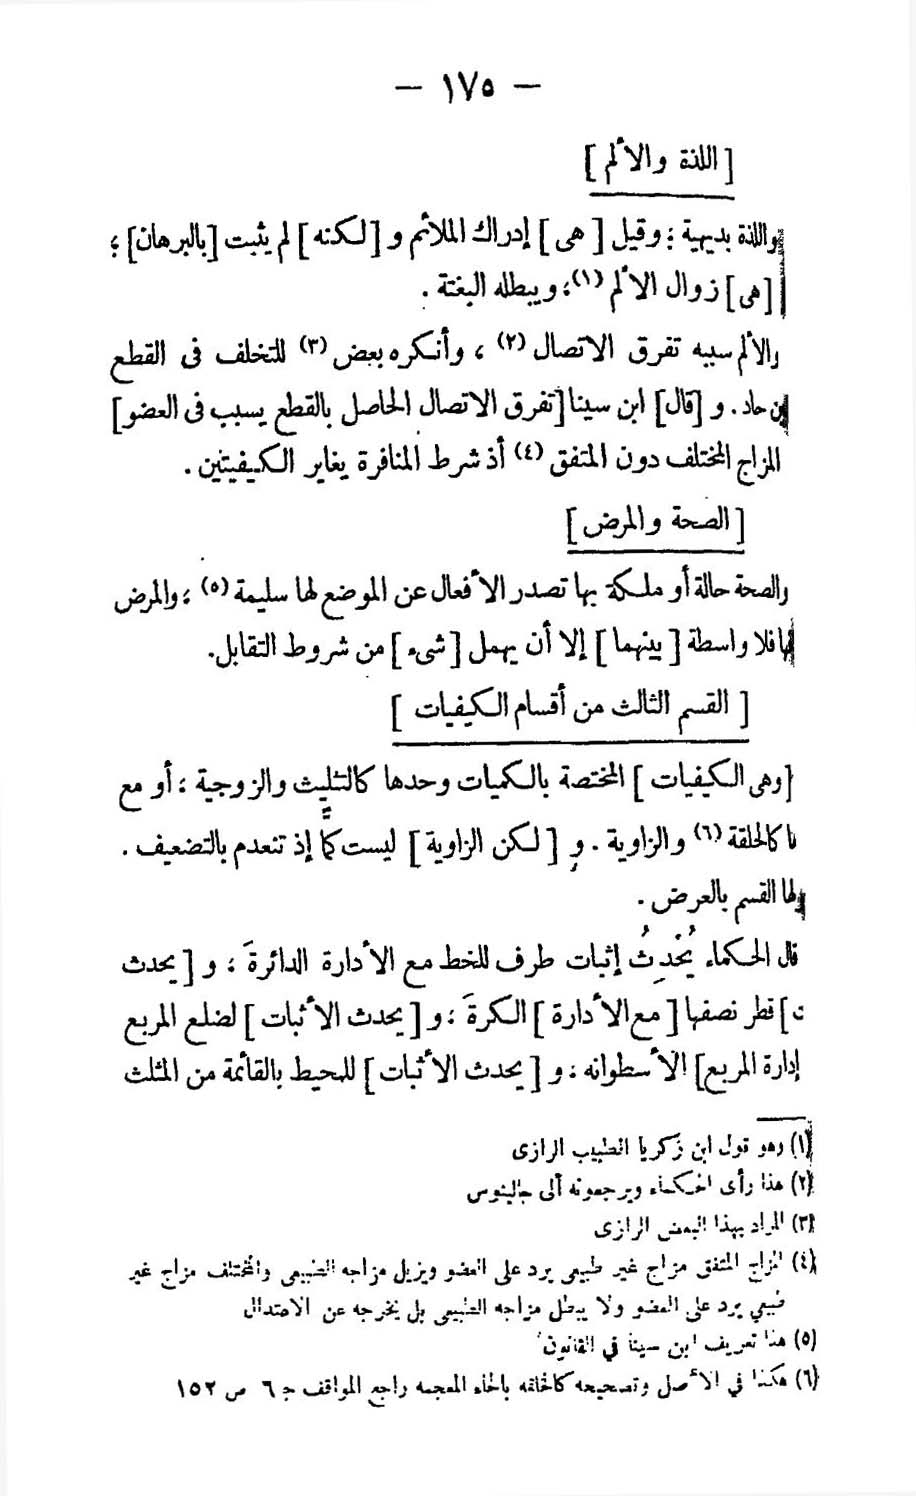 — ١٧٥ —
[ اللذة والألم ]
واللذة بديهية ؛ وقيل [ هى ] إدراك الملائم و [لكنه] لم يثبت [بالبرهان] ؛
[هى] زوال الألم (١)؛ ويبطله البغتة .
والألم سببه تفرق الاتصال (٢) ، وأنكره بعض (٣) للتخلف فى القطع
حاد. و [قال] ابن سينا [تفرق الاتصال الحاصل بالقطع يسبب فى العضو]
المزاج المختلف دون المتفق (٤) أذ شرط المنافرة يغاير الكيفيتين .
[ الصحة والمرض ]
والصحة حالة أو ملكة بها تصدر الأفعال عن الموضع لها سليمة (٥) ؛ والمرض
فلا واسطة [ بينهما ] إلا أن يهمل [ شىء ] من شروط التقابل.
[ القسم الثالث من أقسام الكيفيات ]
[وهى الكيفيات ] المختصة بالكميات وحدها كالتثليث والزوجية ؛ أو مع
كالحلقة (٦) والزاوية . و [ لكن الزاوية ] ليست كمًّا إذ تنعدم بالتضعيف .
ولها القسم بالعرض .
قال الحكماء يُحْدِثُ إثبات طرف للخط مع الأدارة الدائرةَ ، و [ يحدث
قطر نصفها [ مع الأدارة ] الكرةَ ؛ و [ يحدث الأثبات ] لضلع المربع
إدارة المربع] الأسطوانه ؛ و [ يحدث الأثبات ] للمحيط بالقأئمة من المثلث
(١) وهو قول ابن زكريا الطبيب الرازى
(٢) هذا رأى الحكماء ويرجعونه ألى جالينوس
(٣) المراد بهذا البعض الرازى
(٤) المزاج المتفق مزاج غير طبيعى يرد على العضو ويزيل مزاجه الطبيعى والمختلف مزاج غير
طبيعي يرد على العضو ولا يبطل مزاجه الطبيعى بل يخرجه عن الاعتدال
(٥) هذا تعريف ابن سينا في القانون
(٦) هكذا في الأصل وتصحيحه كالخلقه بالخاء المعجمه راجع المواقف ج ٦ ص ١٥٢